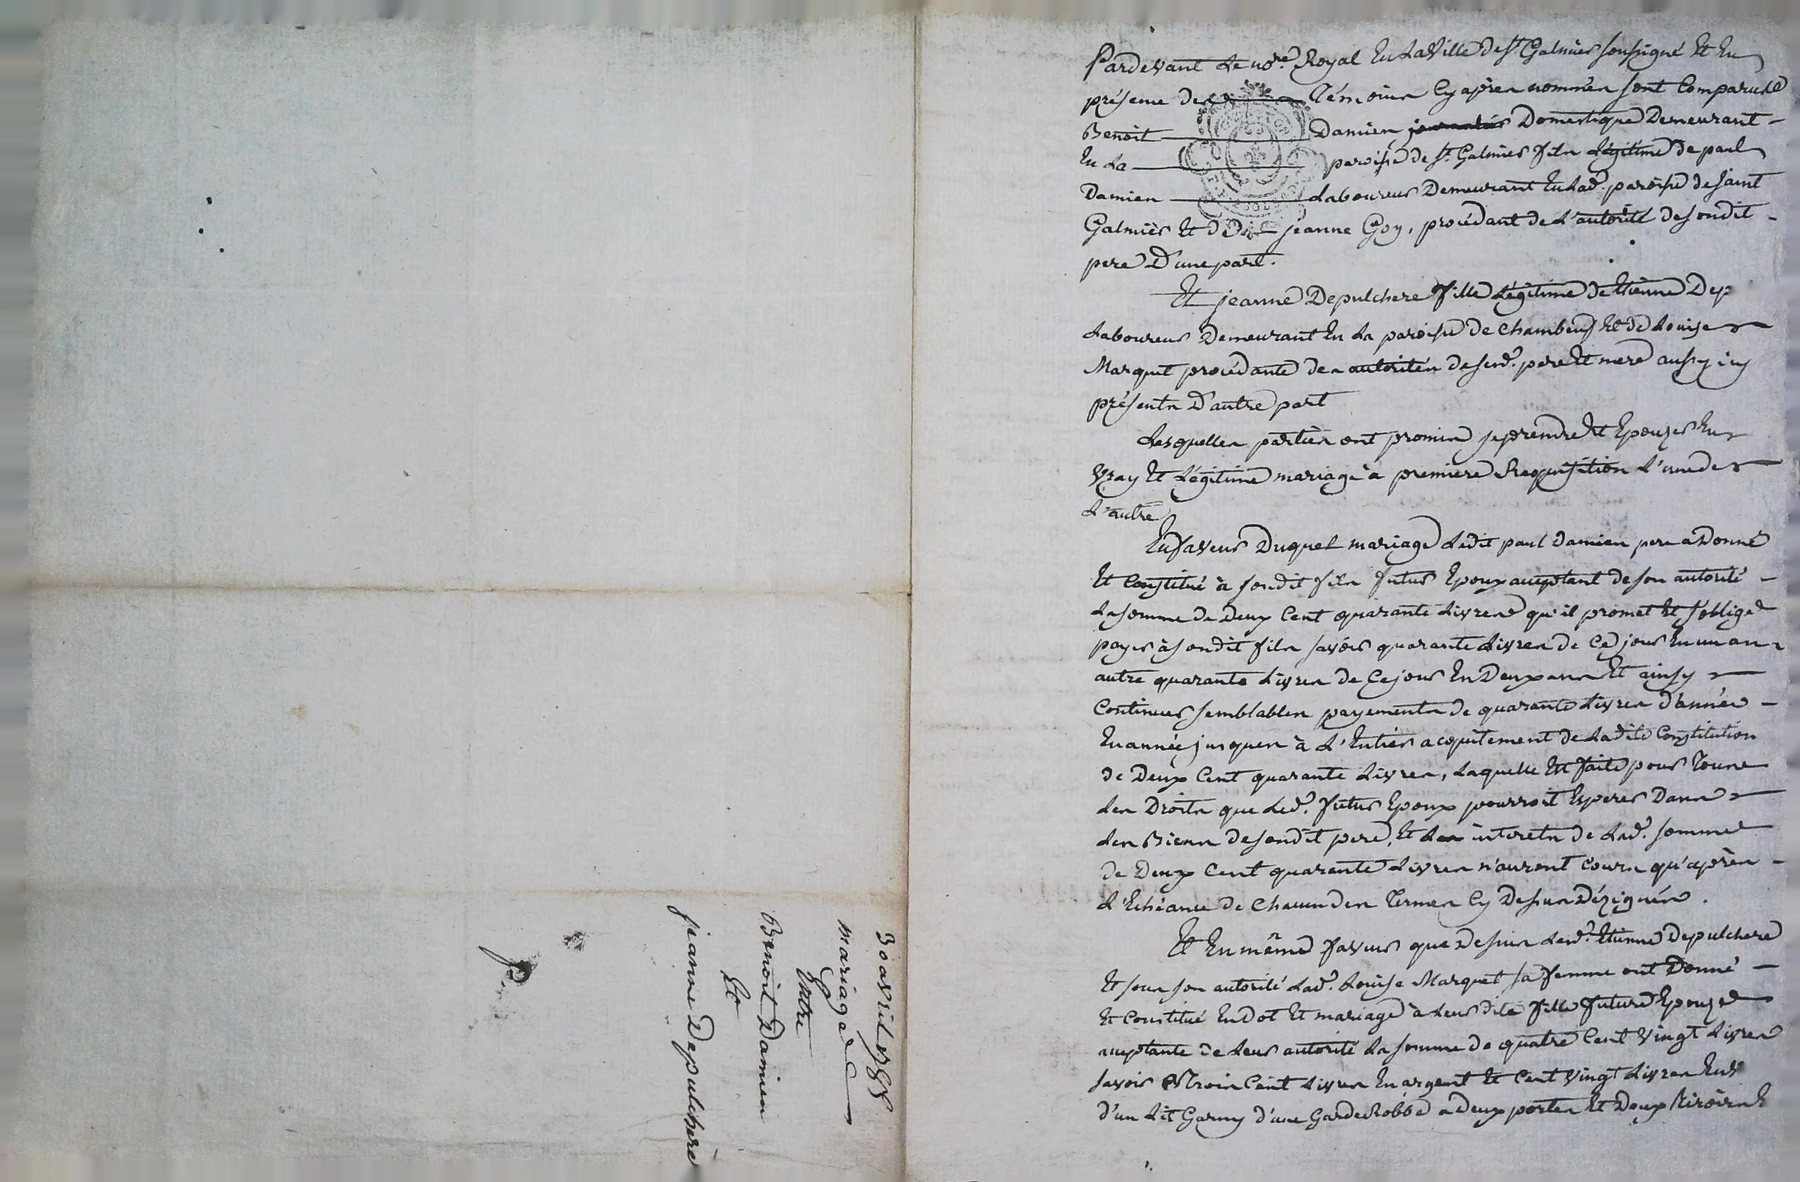 30 avril 1788
mariage
Entre
Benoit Damien
Et
jeanne Depulchere
Pardevant Le no.re Royal En La Ville de S.t Galmier soussigné Et En
présence des Témoins Cy après nommés sont Comparus
Benoit Damien Domestique Demeurant
En La paroisse de S.t Galmier fils Légitime de paul
Damien Laboureur Demeurant En Lad. paroisse de Saint
Galmier Et de jeanne Goy, procédant de L'autorité de sondit
pere D'une part.
Et jeanne Depulchere fille Légitime de Etienne Dep
Laboureur Demeurant En La paroisse de Chambeuf Et de Louise
Marquet procédante des autorités de sesd. pere Et mere aussy icy
présents D'autre part
Lesquelles parties ont promis se prendre Et Epouzer En
Vray Et Légitime mariage à premiere Requisition L'une de
L'autre
En faveur Duquel mariage Ledit paul Damien pere a Donné
Et Constitué à sondit fils futur Epoux acceptant de son autorité
La somme de Deux Cent quarante Livres qu'il promet Et s'oblige
payer à sondit fils savoir quarante Livres de Ce jour En un an
autre quarante Livres de Ce jour En Deux ans Et ainsy
Continuer semblables payements de quarante Livres d'année
En année jusques à L'Entier acquitement de Ladite Constitution
de Deux Cent quarante Livres, Laquelle Est faite pour Tous
Les Droits que Led. futur Epoux pourroit Esperer Dans
Les Biens de sondit pere, Et Les interets de Lad. somme
de Deux Cent quarante Livres n'auront Cours qu'après
L'Echéance de Chacun des Termes Cy Dessus Dézignés.
Et En même faveur que Dessus Led. Etienne Depulchere
Et sous son autorité Lad. Louise Marquet sa femme ont Donné
Et Constitué En Dot Et mariage à Leur dite fille future Epouze
acceptante de Leur autorité La somme de quatre Cent Vingt Livres
savoir Trois Cent Livres En argent Et Cent Vingt Livres En
D'un Lit Garny d'une Garde Robbe a Deux portes Et Deux Tiroirs